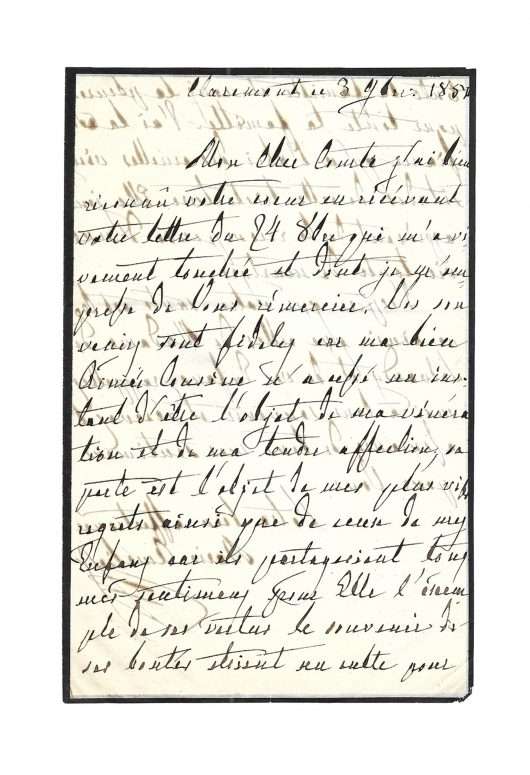 Claremont ce 3 9bre 185
Mon Cher Comte j'ai bien
reconnu votre coeur en recevant
votre lettre du 24 8bre qui m'a vi
vement touchée et dont je m'em
presse de Vous rémercier. Vos sou
venirs sont fideles car ma bien
Aimée Cousine n'a cessé un ins-
tant d'être l'objet de ma vénéra
tion et de ma tendre affection, sa
perte est l'objet de mes plus vifs
regrets ainsi que de ceux de mes
Enfans car ils partageoient tous
mes sentimens pour Elle l'éxem
ple de ses vertus le souvenir de
ses bontes etoient un culte pour